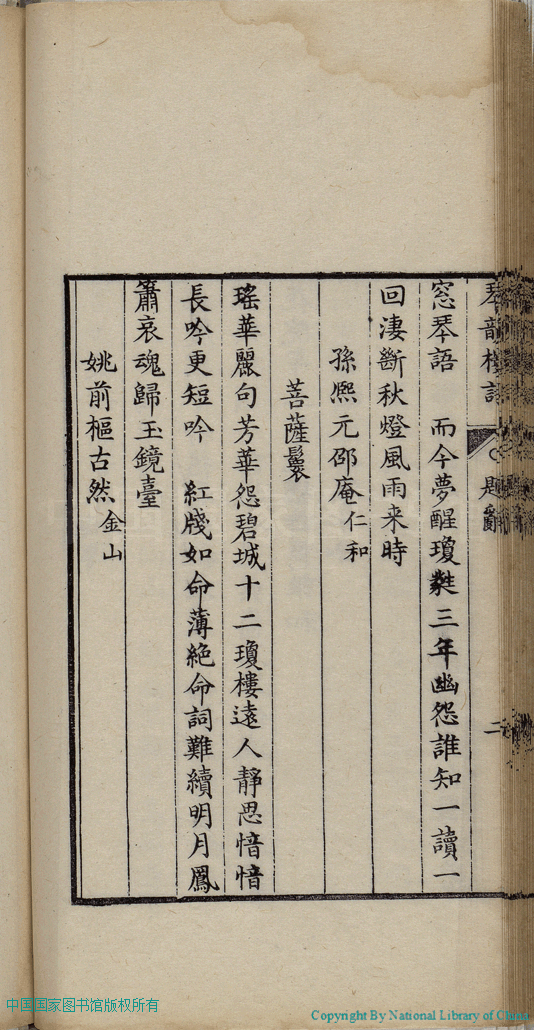 琴韻樓詞 題辭 二
窓琴語 而今夢醒瓊甤三年幽怨誰知一讀一
回淒斷秋燈風雨来時
孫熙元邵庵仁和
菩薩鬘
瑤華麗句芳華怨碧城十二瓊樓遠人靜思愔愔
長吟更短吟 紅牋如命薄絶命詞難續明月鳳
簫哀魂歸玉鏡臺
姚前樞古然金山
中国国家图书馆版权所有
Copyright By National Library of China